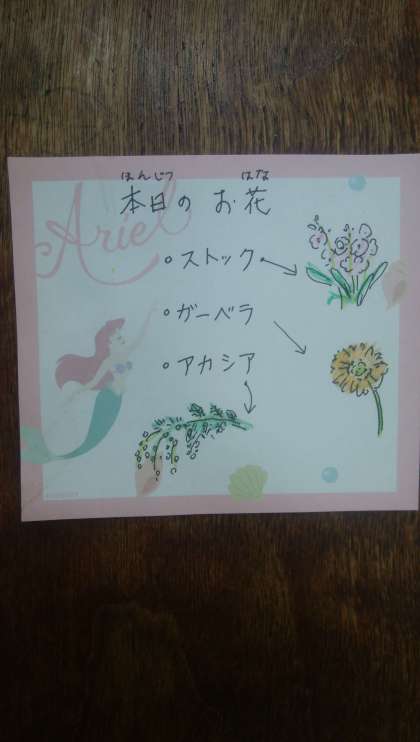 ほんじつ はな
本日の お花
Ariel
・ストック
・ガーベラ
・アカシア